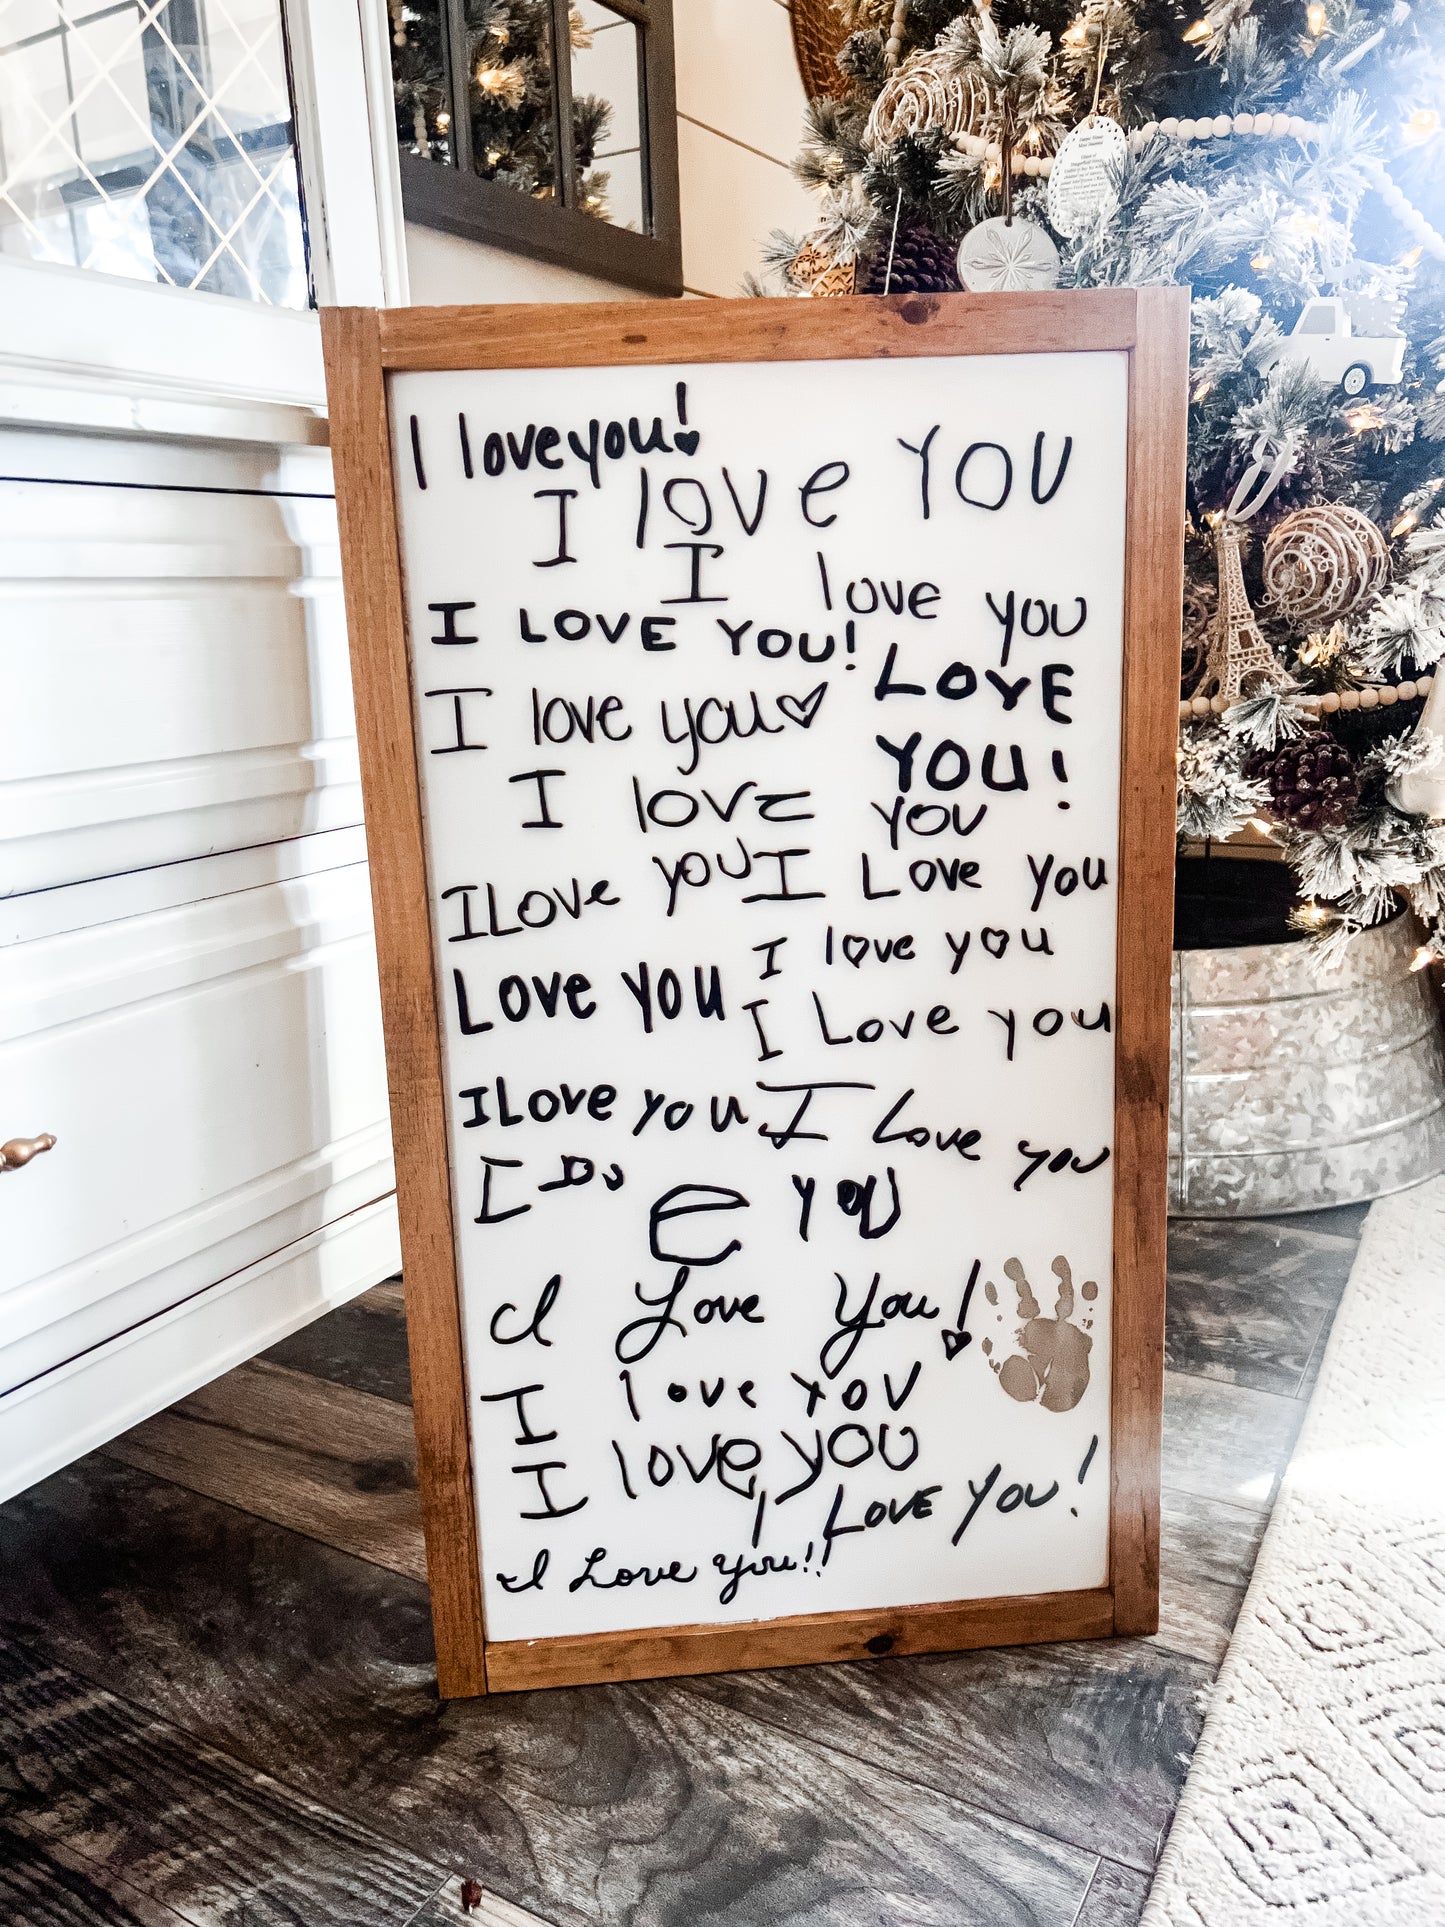 I love you!
I love YOU
I love you
I LOVE YOU!
LOVE
YOU!
I love you
I love you
I Love you
I Love you
I love you
Love you
I Love you
I Love you
I Love you
e you
I Love You!
I love you
I love you
I Love You!
I Love you!!